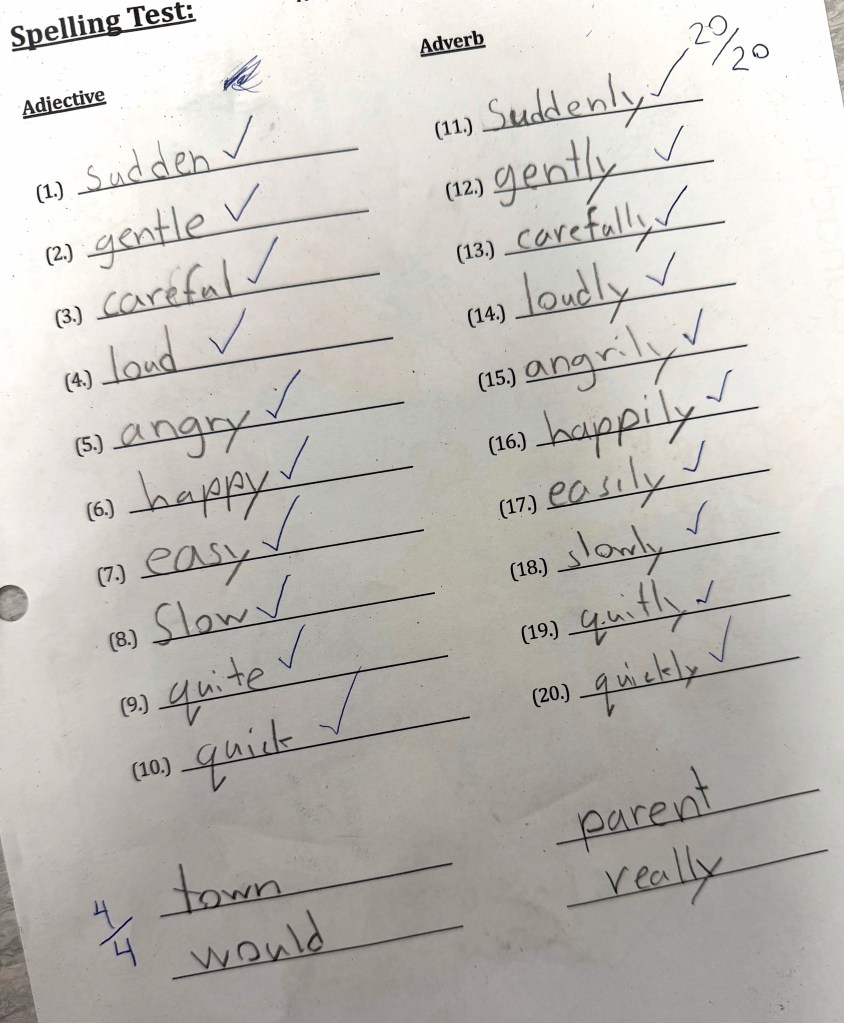 Spelling Test:
Adjective
(1.) sudden ✓
(2.) gentle ✓
(3.) careful ✓
(4.) loud ✓
(5.) angry ✓
(6.) happy ✓
(7.) easy ✓
(8.) Slow ✓
(9.) quite ✓
(10.) quick ✓
4/4
town
would
Adverb
20/20
(11.) Suddenly ✓
(12.) gently ✓
(13.) carefully ✓
(14.) loudly ✓
(15.) angrily ✓
(16.) happily ✓
(17.) easily ✓
(18.) slowly ✓
(19.) quitly ✓
(20.) quickly ✓
parent
really